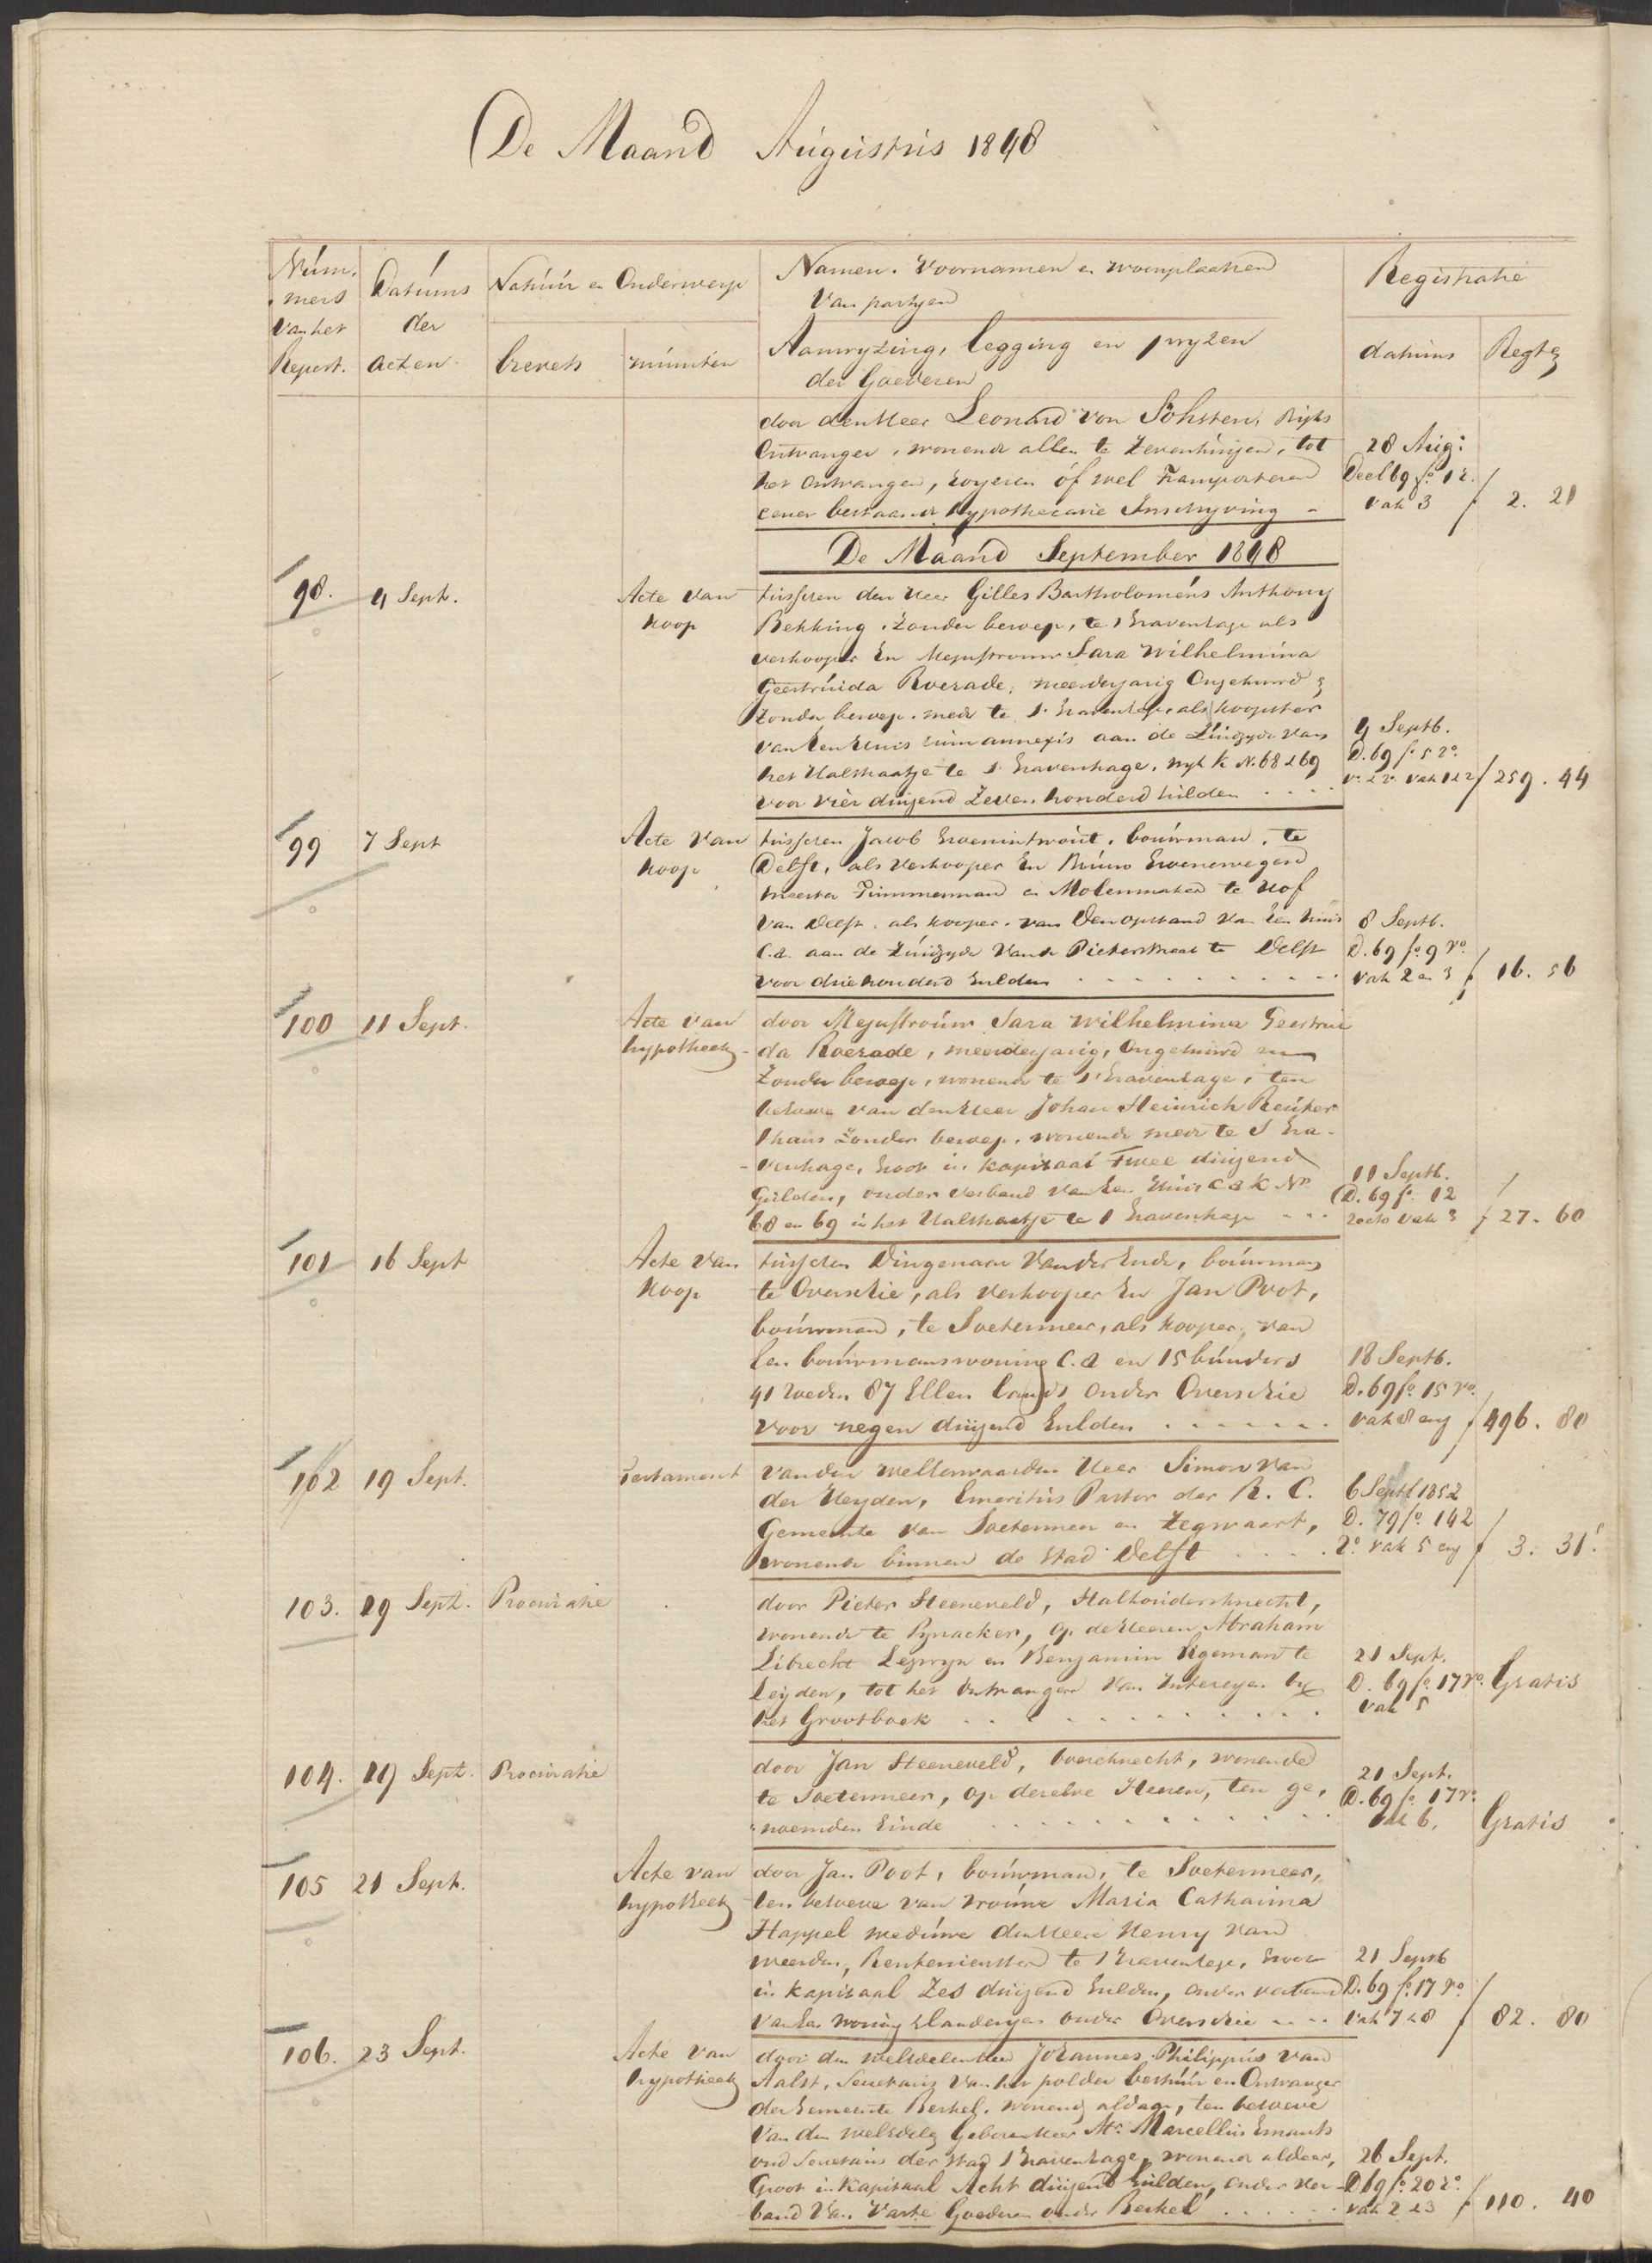 De Maand Augustus 1848
Num-
mers
van het
Repert.
Datums
der
acten
Natuur en Onderwerp
brevets
minuten
Namen. Voornamen en woonplaatsen
van partyen
Aanwyzing, legging en pryzen
der Goederen
Registratie
datums
Regten
door den Heer Leonard von Söhsten, Ryks
Ontvanger, wonende allen te Zevenhuizen, tot
het ontvangen, royeren of wel transporteren
eener bestaande hypothecaire Inschryving -
28 Aug:
Deel 69 fo. 12.
vak 3
f 2. 21
De Maand September 1848
98.
4 Sept.
Acte van
Koop
tusschen den Heer Gilles Bartholomeus Anthony
Bekking, zonder beroep, te 'sGravenhage als
verkooper En Mejuffrouw Sara Wilhelmina
Geertruida Roerade, meerderjarig Ongehuwd
zonder beroep, mede te s' Gravenhage, als koopster
van Een Huis cum annexis aan de Zuidzyde van
het Halstraatje te s' Gravenhage, wyk K No. 68 & 69
voor vier duizend Zeven honderd Gulden . . . .
9 Septb.
D. 69 fo 5 ro.
vo. & ro. vak 1 & 2
f 259. 44
99
7 Sept
Acte van
Koop
tusschen Jacob Groenintwout, bouwman, te
Delft, als Verkooper En Bruno Groenewegen
meester Timmerman en Molenmaker te Hof
van Delft, als kooper, van Den opstand van Een huis
C.a. aan de Zuidzyde van de Pieterstraat te Delft
voor drie honderd Gulden . . . . . . . .
8 Septb.
D. 69 fo. 9 ro.
vak 2 en 3
f 16. 56
100
11 Sept.
Acte van
hypotheek
door Mejuffrouw Sara Wilhelmina Geertrui
da Roerade, meerderjarig, Ongehuwd en
Zonder beroep, wonende te s'Gravenhage, ten
behoeve van den Heer Johan Heinrich Reuter
thans zonder beroep, wonende mede te s Gra-
-venhage, Groot in kapitaal Twee duizend
Gulden, onder verband van Een Huis C a K No
68 en 69 in het Halstraatje te s Gravenhage - - -
11 Septb.
D. 69 fo. 12
recto vak 3
f 27. 60
101
16 Sept
Acte van
Koop
tusschen Dingenaar van der Ende, bouwman
te Overschie, als verkooper En Jan Poot,
bouwman, te Soetermeer, als kooper, van
Een bouwmanswoning C.a en 15 bunders
41 roeden 87 Ellen lands onder Overschie
voor negen duizend Gulden . . . . . .
18 Septb.
D. 69 fo. 15 ro.
vak 8 en 9
f 496. 80
102
19 Sept.
Testament
van den WelEerwaarden Heer Simon van
der Heyden, Emeritus Pastor der R. C.
Gemeente van Soetermeer en Zegwaart,
wonende binnen de stad Delft . . . .
6 Septb 1852
D. 79 fo. 142
ro. vak 5 en 9
f 3. 31 5
103.
19 Sept.
Procuratie
door Pieter Steeneveld, Stalhouders knecht,
wonende te Pynacker, op de Heeren Abraham
Librecht Lezwyn en Benjamin Ageman te
Leyden, tot het Ontvangen van Interesen by
het Grootboek . . . . . . . . . . .
21 Sept.
D. 69 fo. 17 ro.
vak 5
Gratis
104.
19 Sept.
Procuratie
door Jan Steeneveld, boereknecht, wonende
te Soetermeer, op dezelve Heeren, ten ge-
-noemden Einde . . . . . . . . .
21 Sept.
D. 69 fo. 17 ro.
vak 6.
Gratis
105
21 Sept.
Acte van
hypotheek
door Jan Poot, bouwman, te Soetermeer,
ten behoeve van vrouwe Maria Catharina
Happel weduwe den Heer Henry van
weerden, Rentenierster te s Gravenhage, Groot
in kapitaal Zes duizend Gulden, onder verband
van Een woning & landeryen onder Overschie - - -
21 Septb
D. 69 fo. 17 ro
vak 7 & 8
f 82. 80
106.
23 Sept.
Acte van
hypotheek
door den welEdelen Heer Johannes Philippus van
Aalst, Secretaris van het polder bestuur en Ontvanger
der Gemeente Berkel, wonende aldaar, ten behoeve
van den welEdelen Geboren Heer Mr. Marcellus Emants
oud Secretaris der stad s Gravenhage, wonende aldaar,
Groot in kapitaal Acht duizend Gulden, onder ver-
band van Vaste Goederen onder Berkel . . . . . .
26 Sept.
D 69 fo. 20 ro.
vak 2 & 3
f 110. 40